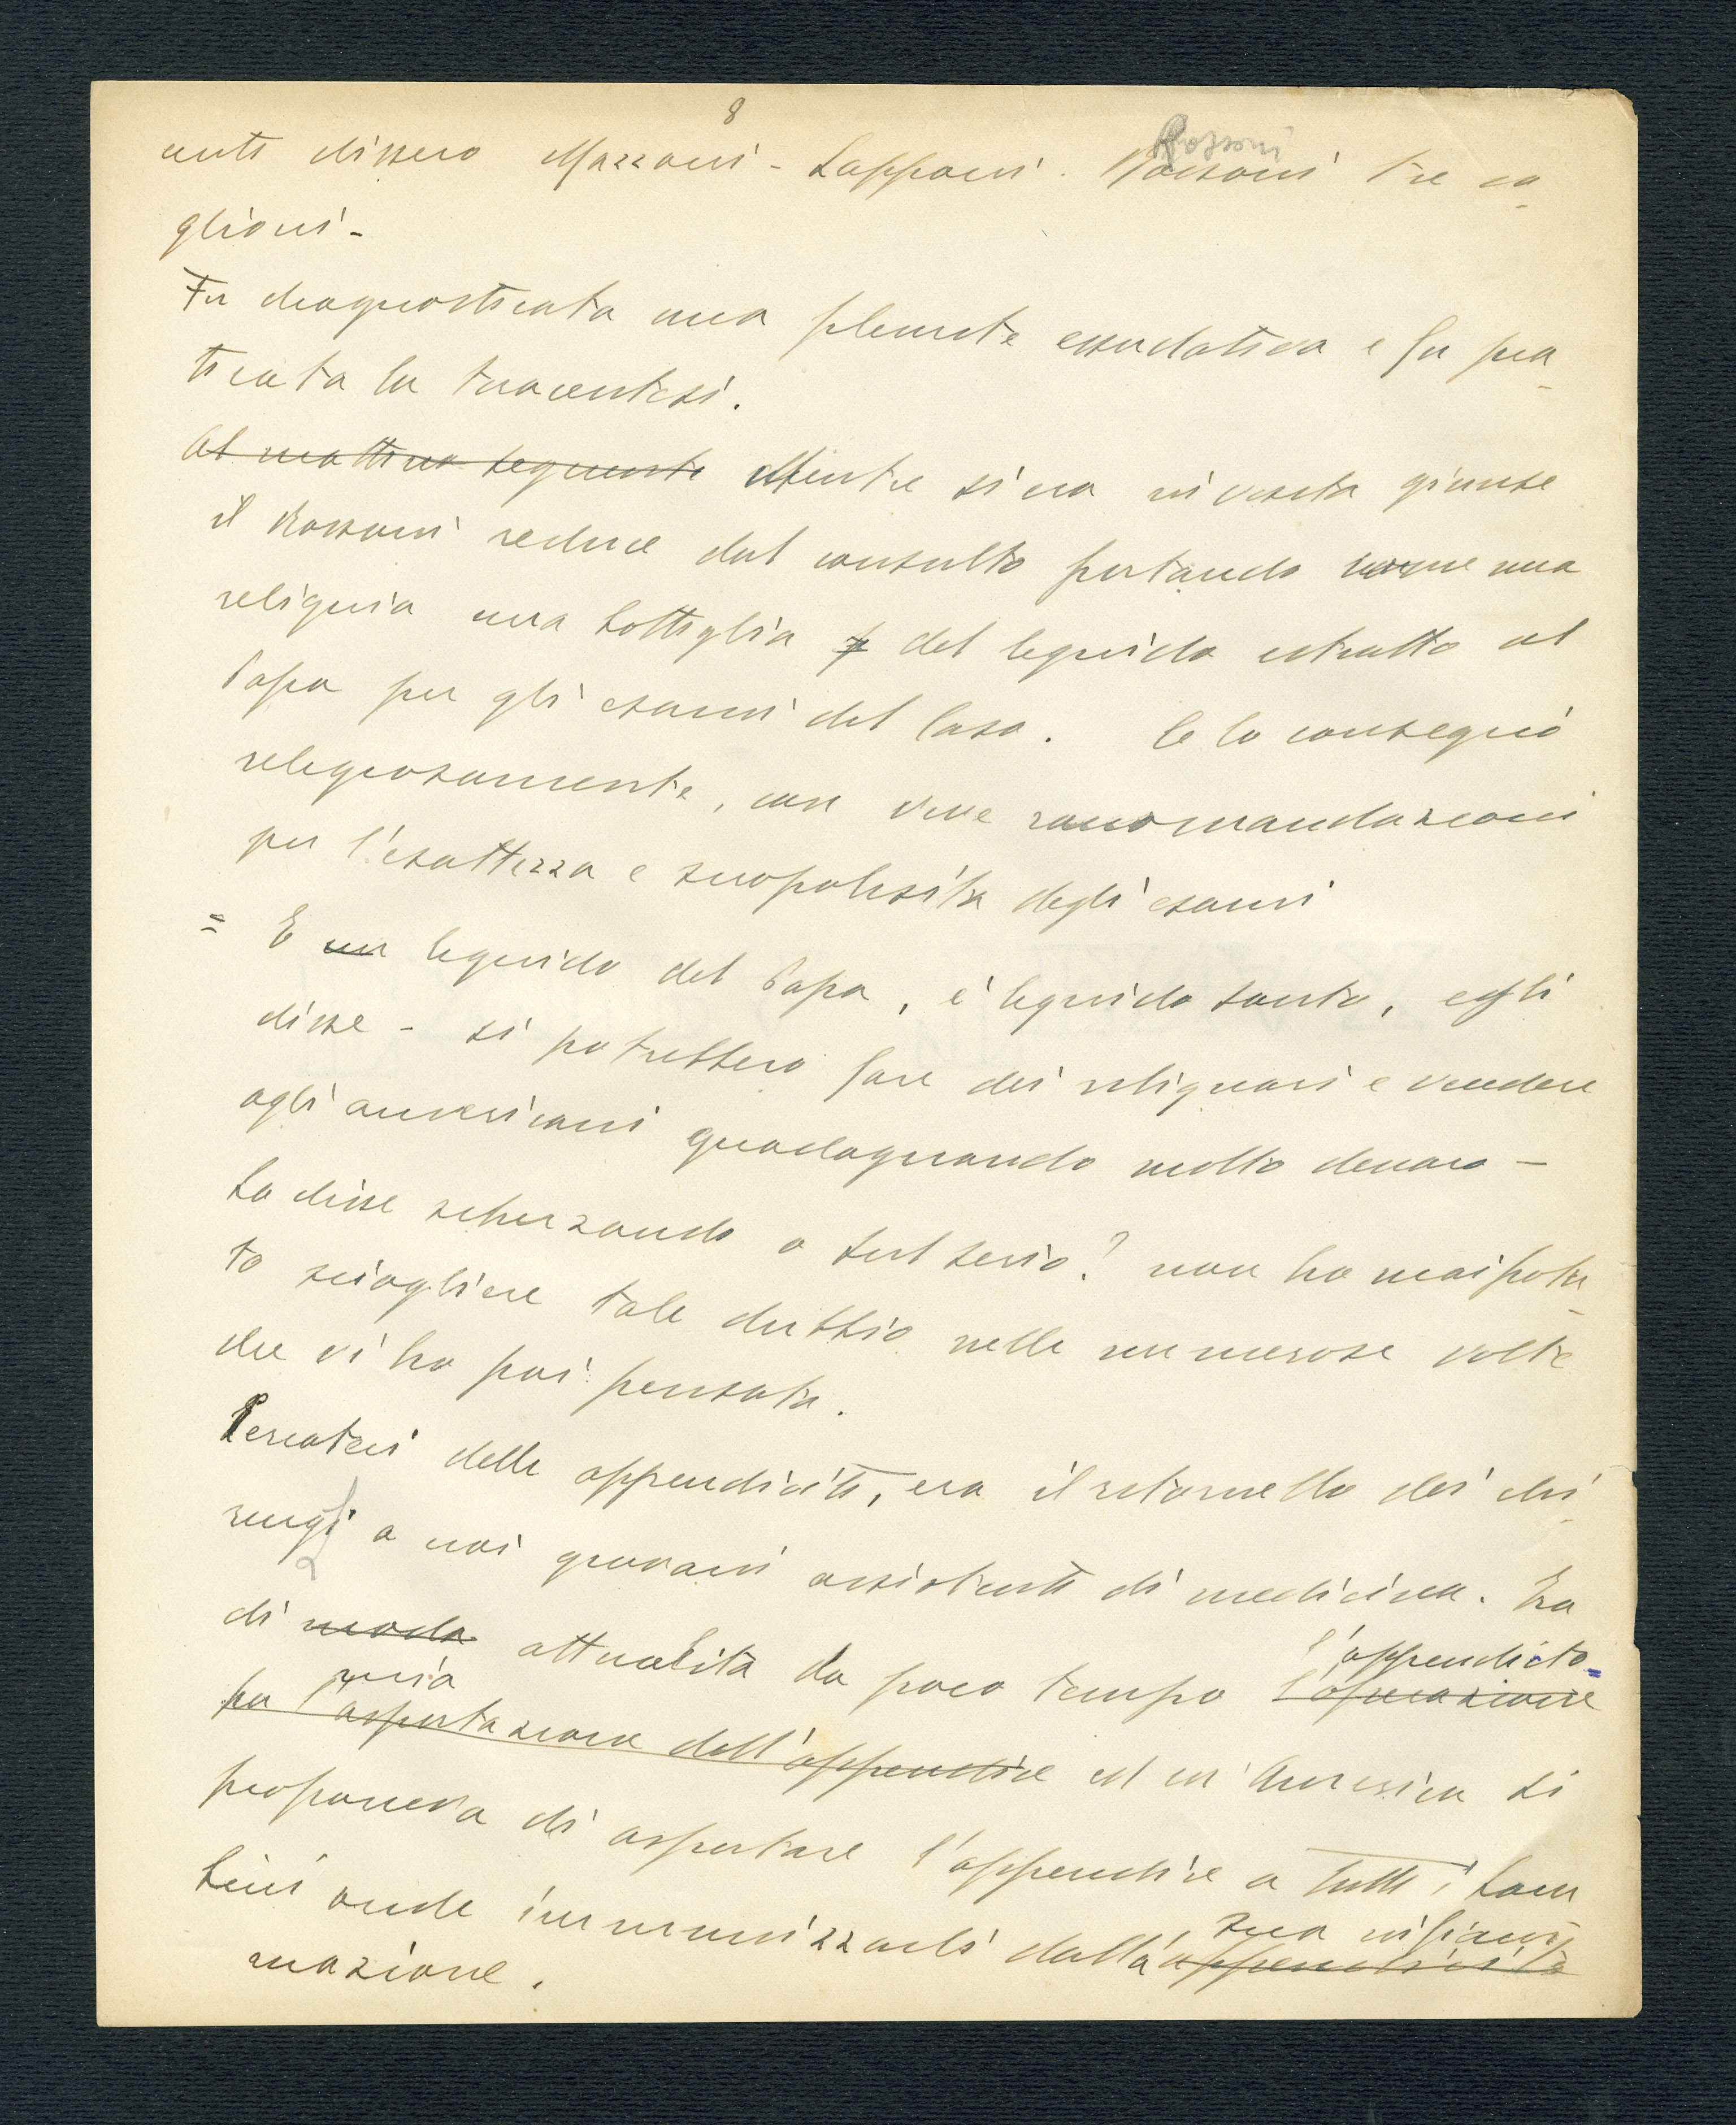 8
Rossoni
anti dissero Mazzoni - Lapponi. Rossoni Tre co
glioni -
Fu diagnosticata una pleurite essudativa e fu pra
ticata la toracentesi.
Al mattino seguente Mentre si era in visita giunse
il Rossoni reduce dal consulto portando come una
reliquia una bottiglia del liquido estratto al
Papa per gli esami del caso. Ce lo consegnò
religiosamente, con vive raccomandazioni
per l'esattezza e scrupolosità degli esami
= E un liquido del Papa, è liquido santo, egli
disse - si potrebbero fare dei reliquari e vendere
agli americani guadagnando molto denaro -
Lo disse scherzando o sul serio? non ho mai potu
to sciogliere tale dubbio nelle numerose volte
che vi ho poi pensato.
Seccateci delle appendiciti, era il ritornello dei chi
rurgi a noi giovani assistenti di medicina. Era
di moda attualità da poco tempo l'operazione
l'appendicto=
mia
per l'asportazione dell'appendice ed in America si
proponeva di asportare l'appendice a tutti i bam
bini onde immunizzarli dall'appendicite
sua infiam
mazione.